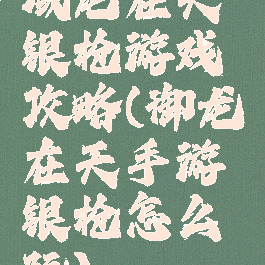 银枪游戏
攻略(御龙
在天手游
银枪怎么